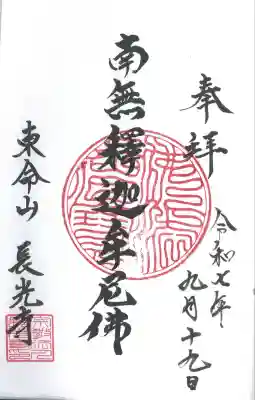 奉拝
令和七年
九月十九日
南無釋迦牟尼佛
東命山
長光寺